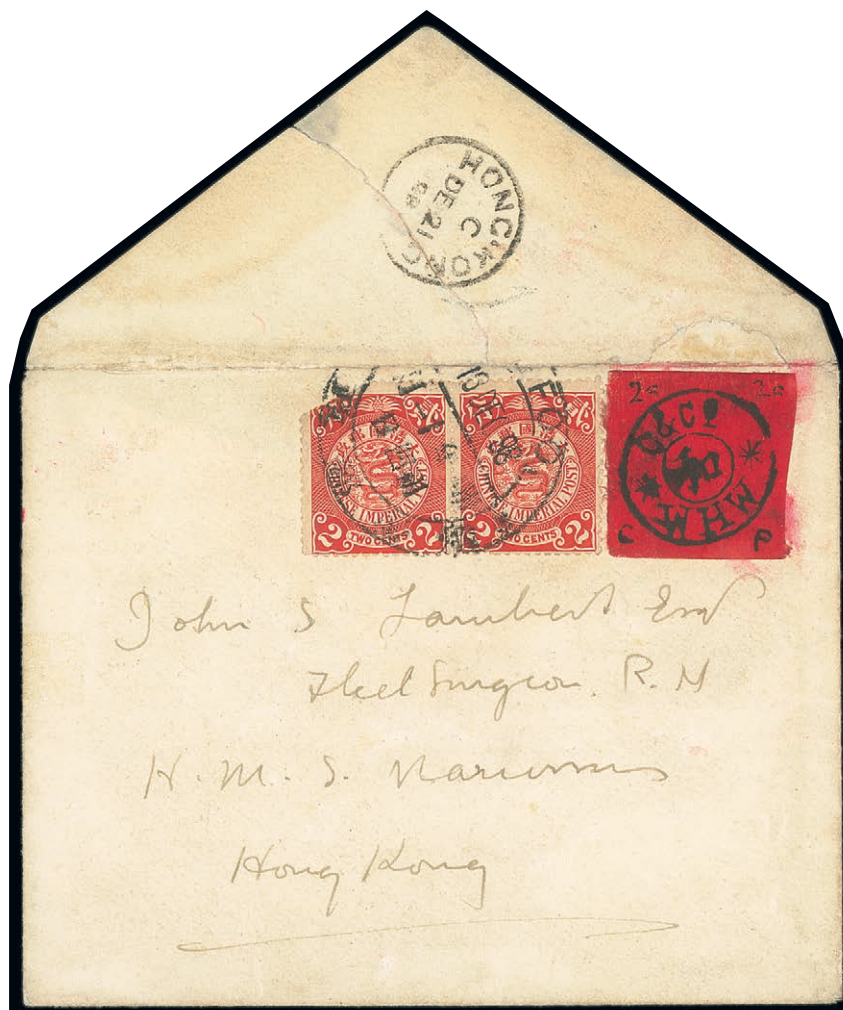 HONG KONG
C
DE 21
98
CHINESE IMPERIAL POST
2 TWO CENTS 2
CHINESE IMPERIAL POST
2 TWO CENTS 2
2c 2c
O & Co
MHM
C P
John S Lambert Esq
Fleet Surgeon. R. N
H. M. S.
Hong Kong